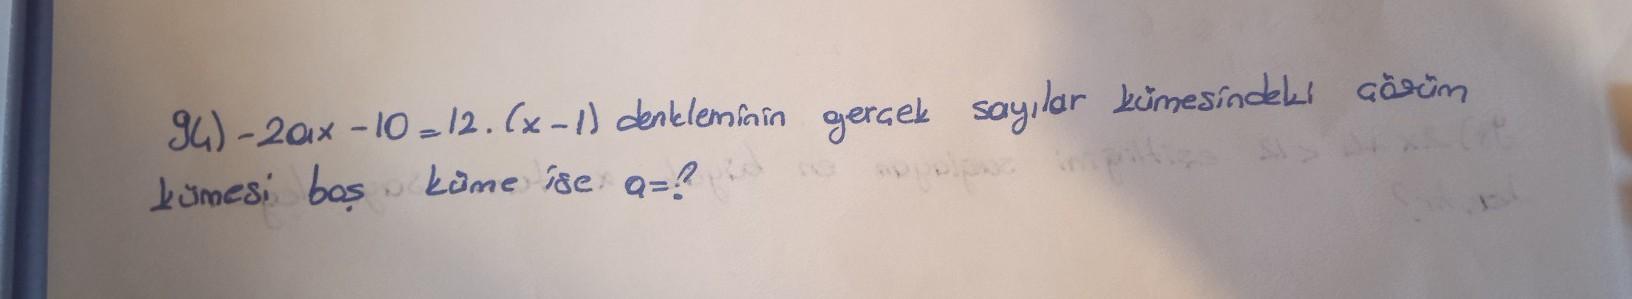 94) -2ax -10 = 12.(x-1) denkleminin gerçek sayılar kümesindeki çözüm
kümesi boş küme ise a=?